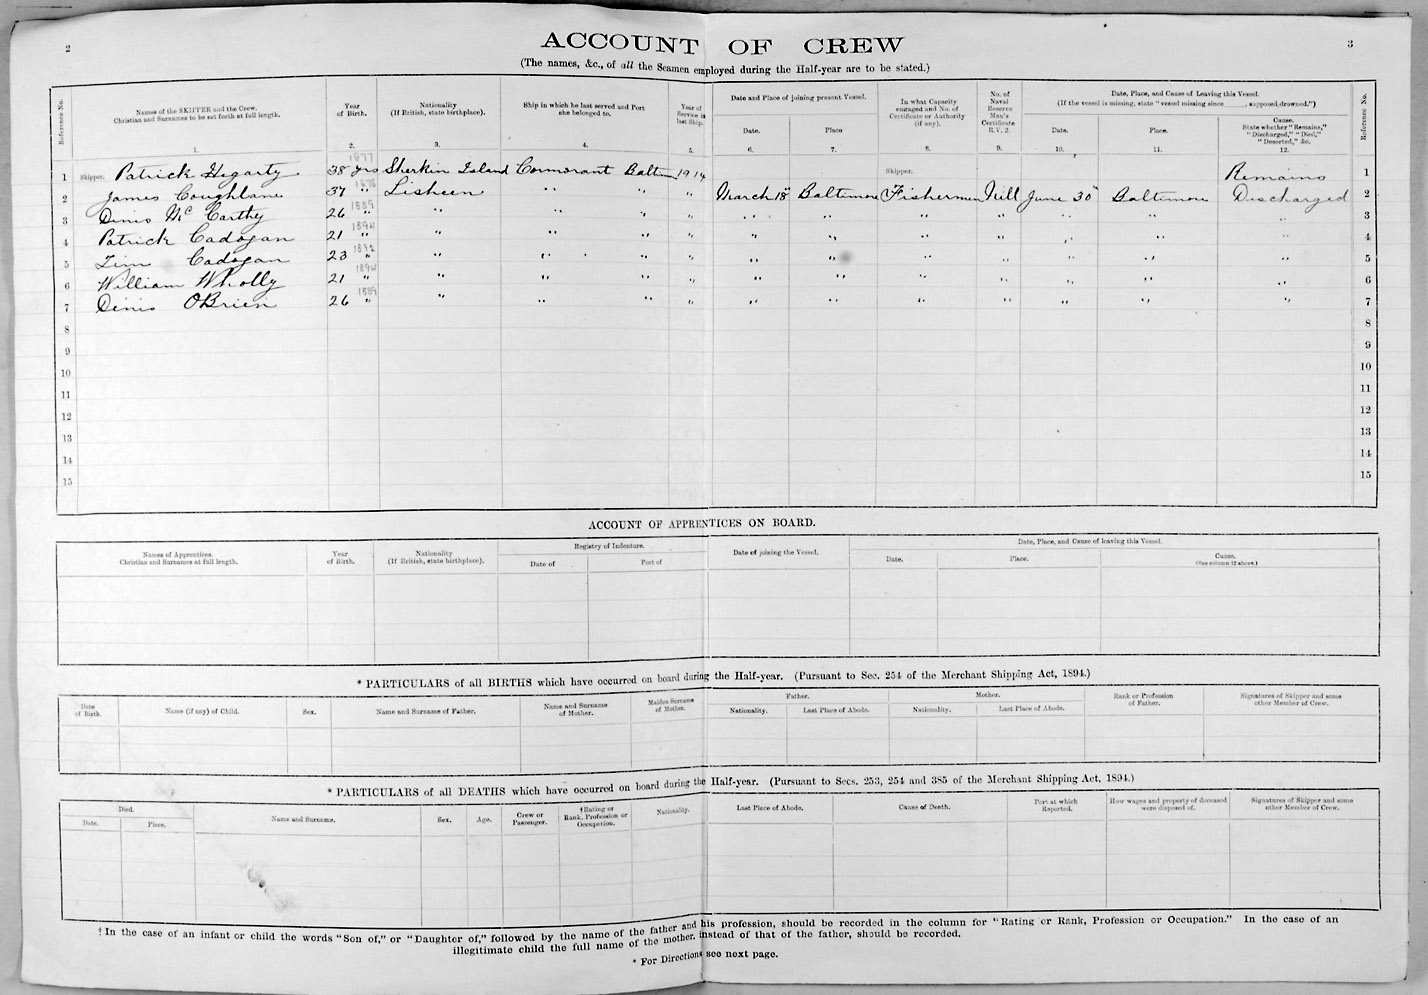 2
3
ACCOUNT OF CREW
(The names, &c., of all the Seamen employed during the Half-year are to be stated.)
Reference No. Names of the SKIPPER and the Crew. Christian and Surnames to be set forth at full length. Year of Birth. Nationality (If British, state birthplace). Ship in which he last served and Port she belonged to. Year of Service in last Ship. Date and Place of joining present Vessel. In what Capacity engaged and No. of Certificate or Authority (if any). No. of Naval Reserve Man's Certificate R.V. 2. Date, Place, and Cause of Leaving this Vessel. (If the vessel is missing, state "vessel missing since ____, supposed drowned.") Reference No.
Date. Place Date. Place. Cause. State whether "Remains," "Discharged," "Died," "Deserted," &c.
1. 2. 3. 4. 5. 6. 7. 8. 9. 10. 11. 12.
1877
1 Skipper. Patrick Hegarty 38 yrs Sherkin Island Cormorant Baltim 1914 Skipper. Remains 1
1878
2 James Coughlane 37 " Lisheen " " " March 18th Baltimore Fishermen Nill June 30th Baltimore Discharged 2
1889
3 Denis McCarthy 26 " " " " " " " " " " " " 3
1894
4 Patrick Cadogan 21 " " " " " " " " " " " " 4
1892
5 Tim Cadogan 23 " " " " " " " " " " " " 5
1894
6 William Wholly 21 " " " " " " " " " " " " 6
1889
7 Denis OBrien 26 " " " " " " " " " " " " 7
8 8
9 9
10 10
11 11
12 12
13 13
14 14
15 15
ACCOUNT OF APPRENTICES ON BOARD.
Names of Apprentices. Christian and Surnames at full length. Year of Birth. Nationality (If British, state birthplace). Registry of Indenture. Date of joining the Vessel. Date, Place, and Cause of leaving this Vessel.
Date of Port of Date. Place. Cause. (See column 12 above.)
* PARTICULARS of all BIRTHS which have occurred on board during the Half-year. (Pursuant to Sec. 254 of the Merchant Shipping Act, 1894.)
Date of Birth. Name (if any) of Child. Sex. Name and Surname of Father. Name and Surname of Mother. Maiden Surname of Mother. Father. Mother. Rank or Profession of Father. Signatures of Skipper and some other Member of Crew.
Nationality. Last Place of Abode. Nationality. Last Place of Abode.
* PARTICULARS of all DEATHS which have occurred on board during the Half-year. (Pursuant to Secs. 253, 254 and 385 of the Merchant Shipping Act, 1894.)
Died. Name and Surname. Sex. Age. Crew or Passenger. †Rating or Rank, Profession or Occupation. Nationality. Last Place of Abode. Cause of Death. Port at which Reported. How wages and property of deceased were disposed of. Signatures of Skipper and some other Member of Crew.
Date. Place.
† In the case of an infant or child the words "Son of," or "Daughter of," followed by the name of the father and his profession, should be recorded in the column for "Rating or Rank, Profession or Occupation." In the case of an
illegitimate child the full name of the mother, instead of that of the father, should be recorded.
* For Directions see next page.